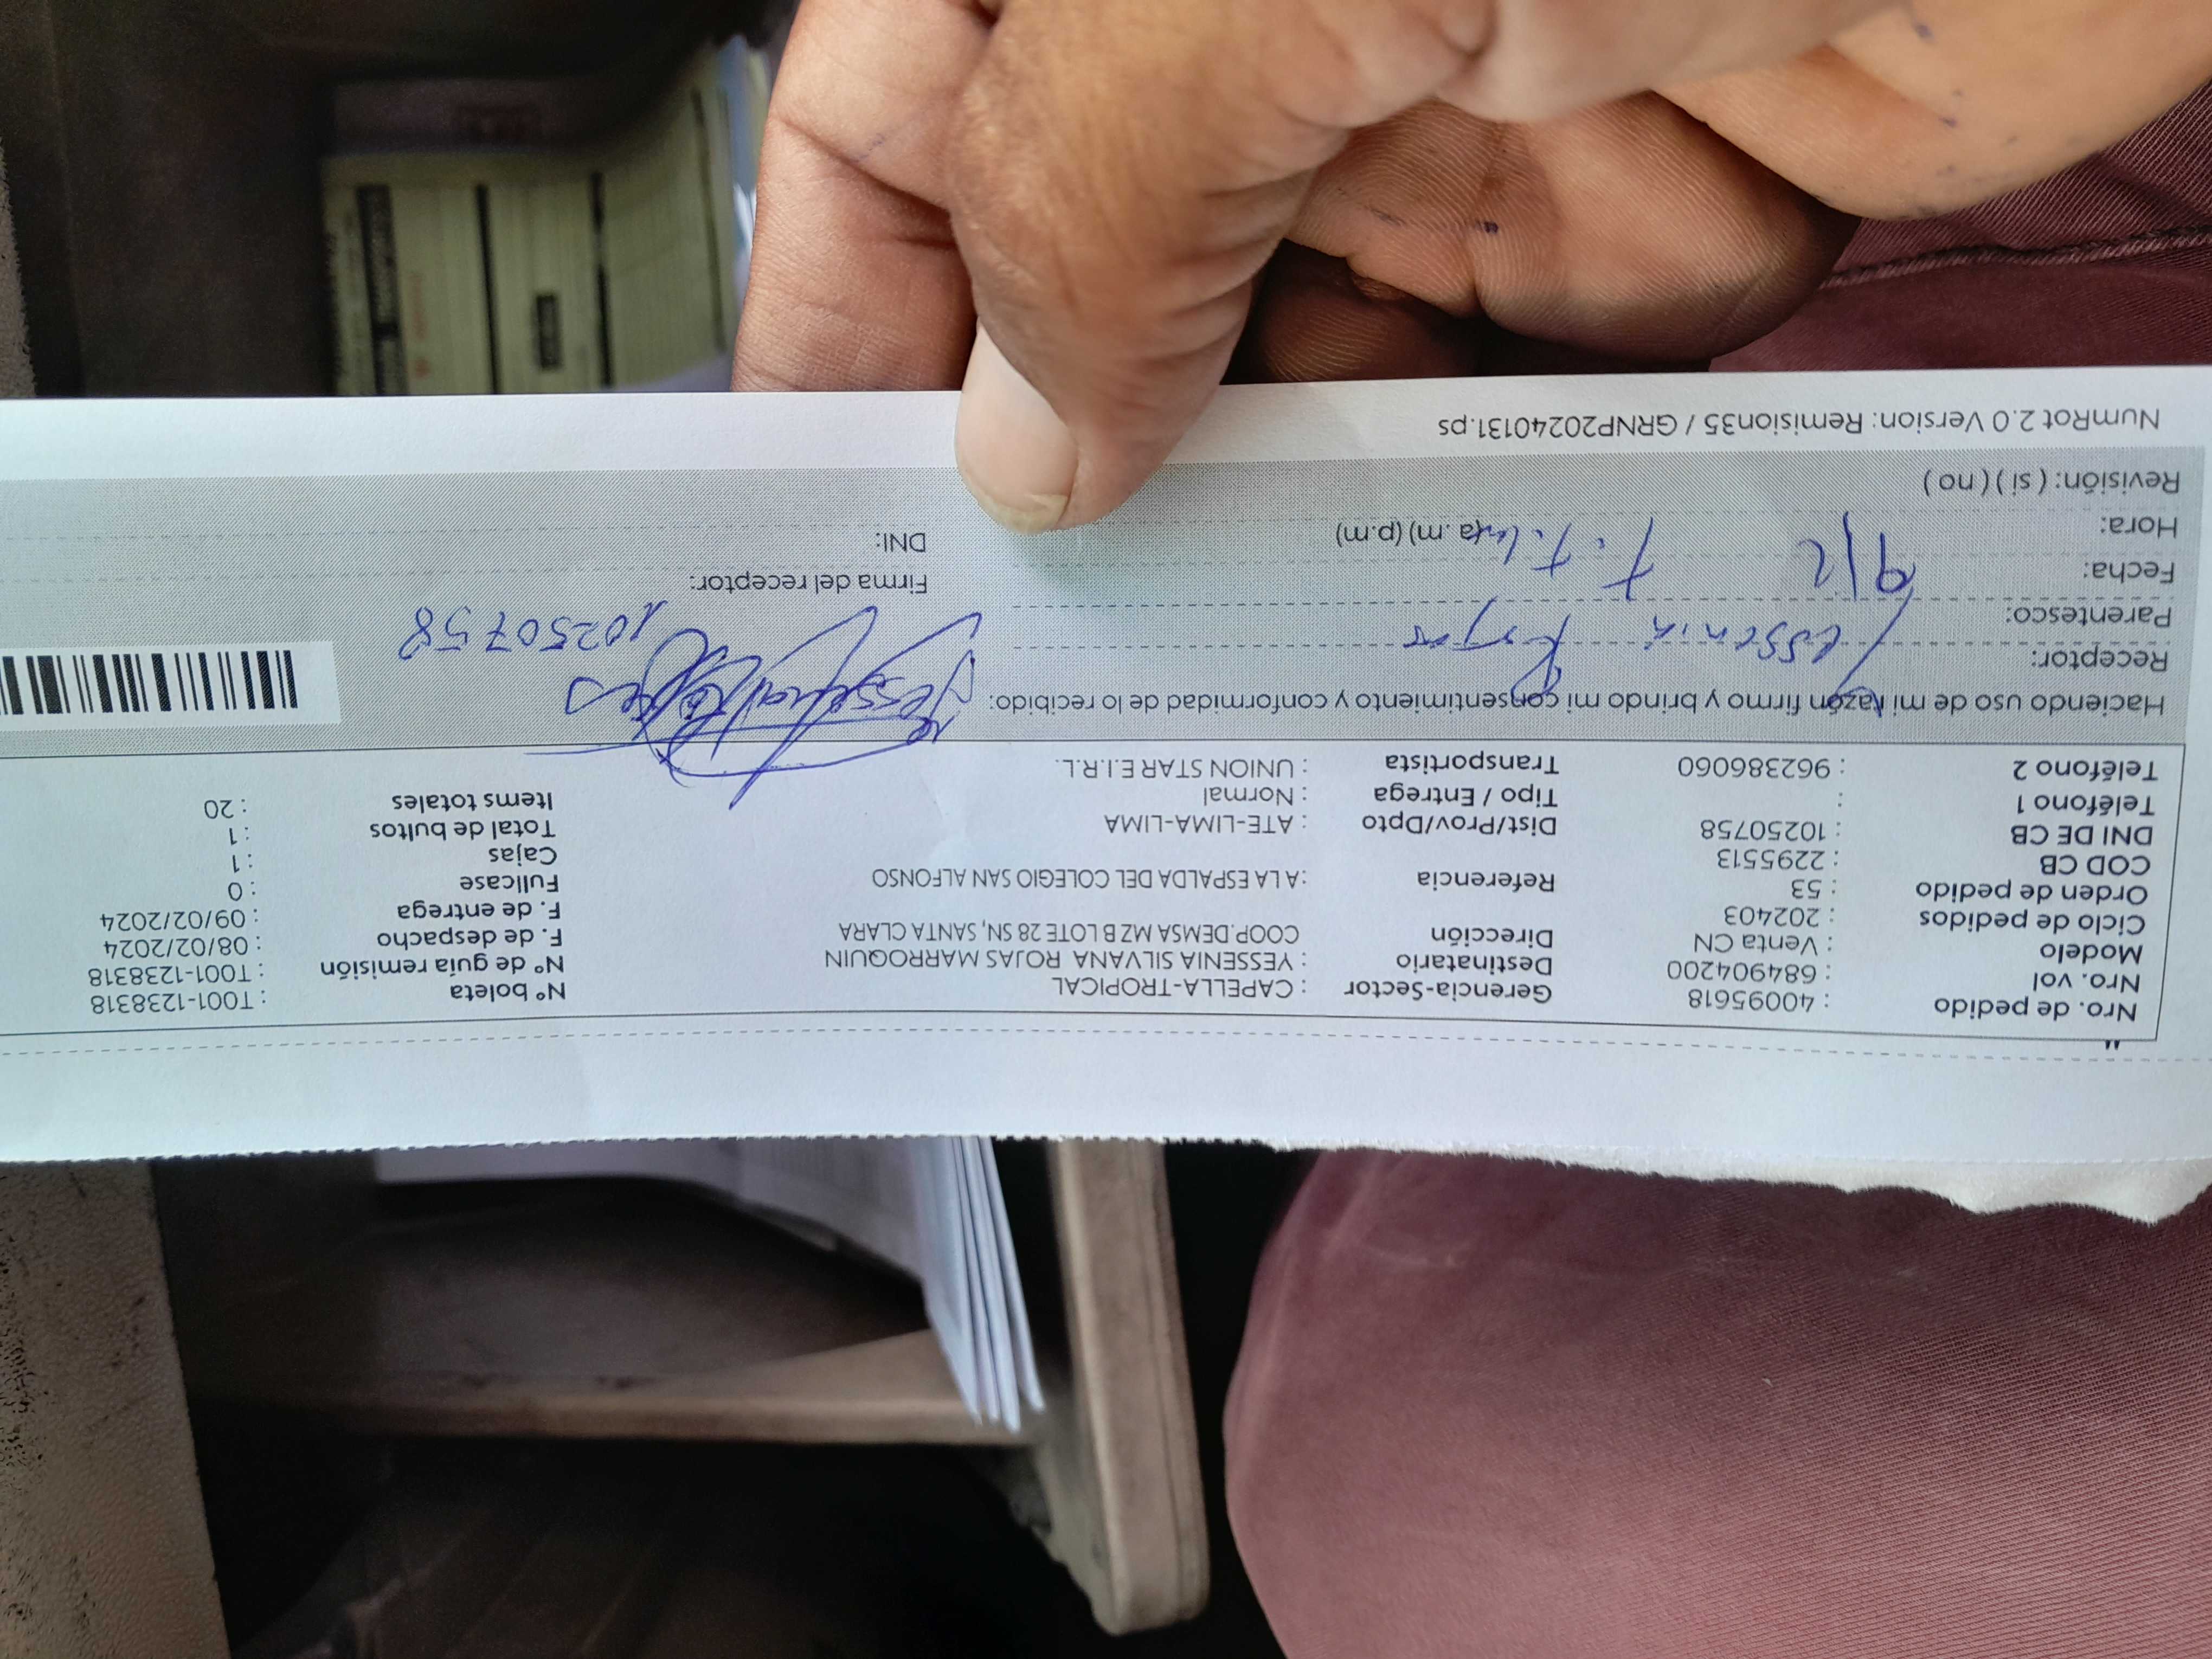 Nro. de pedido : 40095618 Gerencia-Sector : CAPELLA-TROPICAL Nº boleta : T001-1238318
Nro. vol : 684904200 Destinatario : YESSENIA SILVANA ROJAS MARROQUIN Nº de guía remisión : T001-1238318
Modelo : Venta CN Dirección COOP. DEMSA MZ B LOTE 28 SN, SANTA CLARA F. de despacho : 08/02/2024
Ciclo de pedidos : 202403 F. de entrega : 09/02/2024
Orden de pedido : 53 Referencia : A LA ESPALDA DEL COLEGIO SAN ALFONSO Fullcase : 0
COD CB : 2295513 Cajas : 1
DNI DE CB : 10250758 Dist/Prov/Dpto : ATE-LIMA-LIMA Total de bultos : 1
Teléfono 1 : Tipo / Entrega : Normal Items totales : 20
Teléfono 2 : 962386060 Transportista : UNION STAR E.I.R.L.
Haciendo uso de mi razón firmo y brindo mi consentimiento y conformidad de lo recibido:
Receptor: Yessenia Rojas
Parentesco: 10250758
Fecha: 9/2 Firma del receptor:
Hora: (a.m) (p.m) DNI:
Revisión: ( si ) ( no )
NumRot 2.0 Version: Remision35 / GRNP20240131.ps